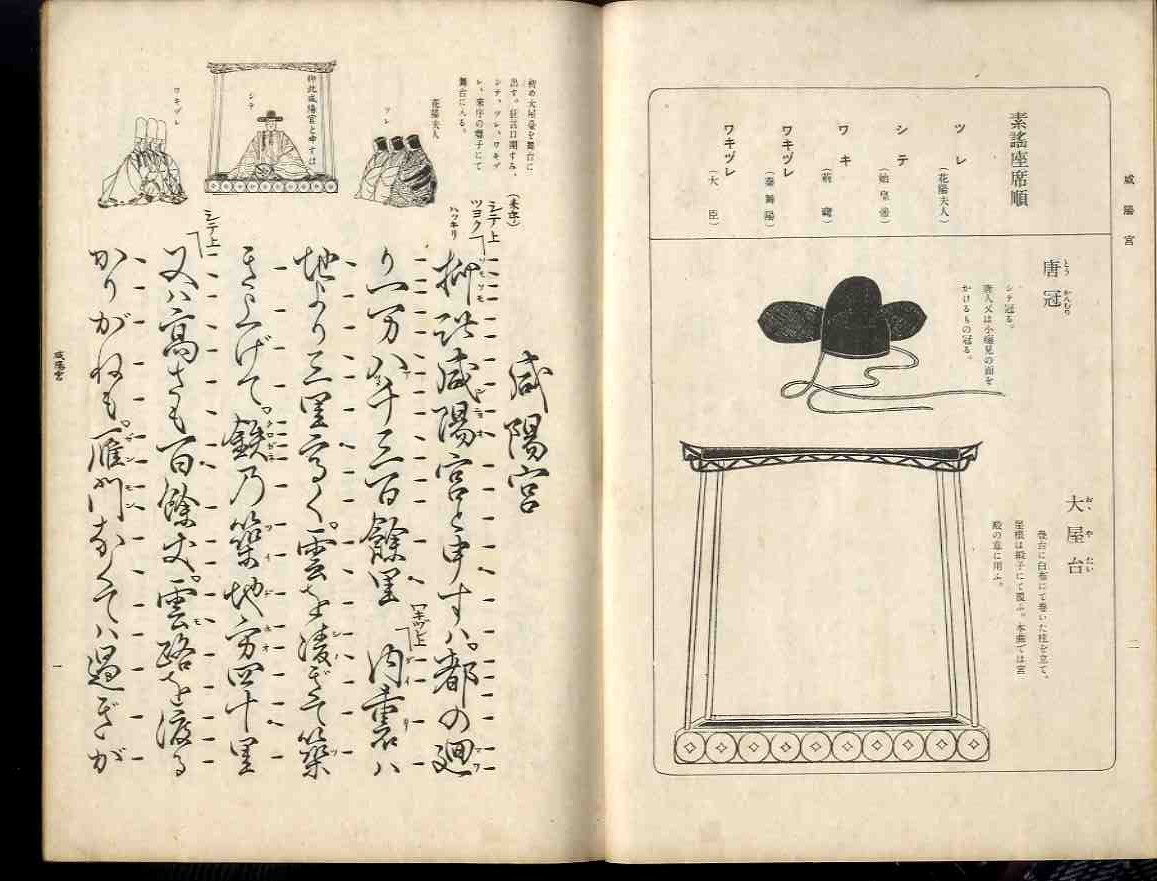 咸陽宮
素謡座席順
ツレ
(花陽夫人)
シテ
(始皇帝)
ワキ
(荊軻)
ワキヅレ
(秦舞陽)
ワキヅレ
(大臣)
唐冠
とう かんむり
シテ冠る。
唐人又は小癋見の面を
かけるもの冠る。
大屋台
おゝ や たい
疊台に白布にて巻いた柱を立て、
屋根は緞子にて覆ふ。本曲では宮
殿の意に用ふ。
二
初め大屋臺を舞台に
出す。狂言口開すみ、
シテ、ツレ、ワキヅ
レ、來序の囃子にて
舞台に入る。
花陽夫人
ツレ
シテ
抑此咸陽宮と申すは
ワキヅレ
咸陽宮
(来序)
シテ上
ツヨク
ハツキリ
抑此咸陽宮と申すハ。都の廻
り一万八千三百餘里
ワキヅレ上
内裏ハ
地より三里高く。雲を凌ぎて築
きあげて。鉄の築地方四十里
シテ上
又ハ高さも百餘丈。雲路を渡る
かりがねも。雁門なくてハ過ぎが
咸陽宮
一